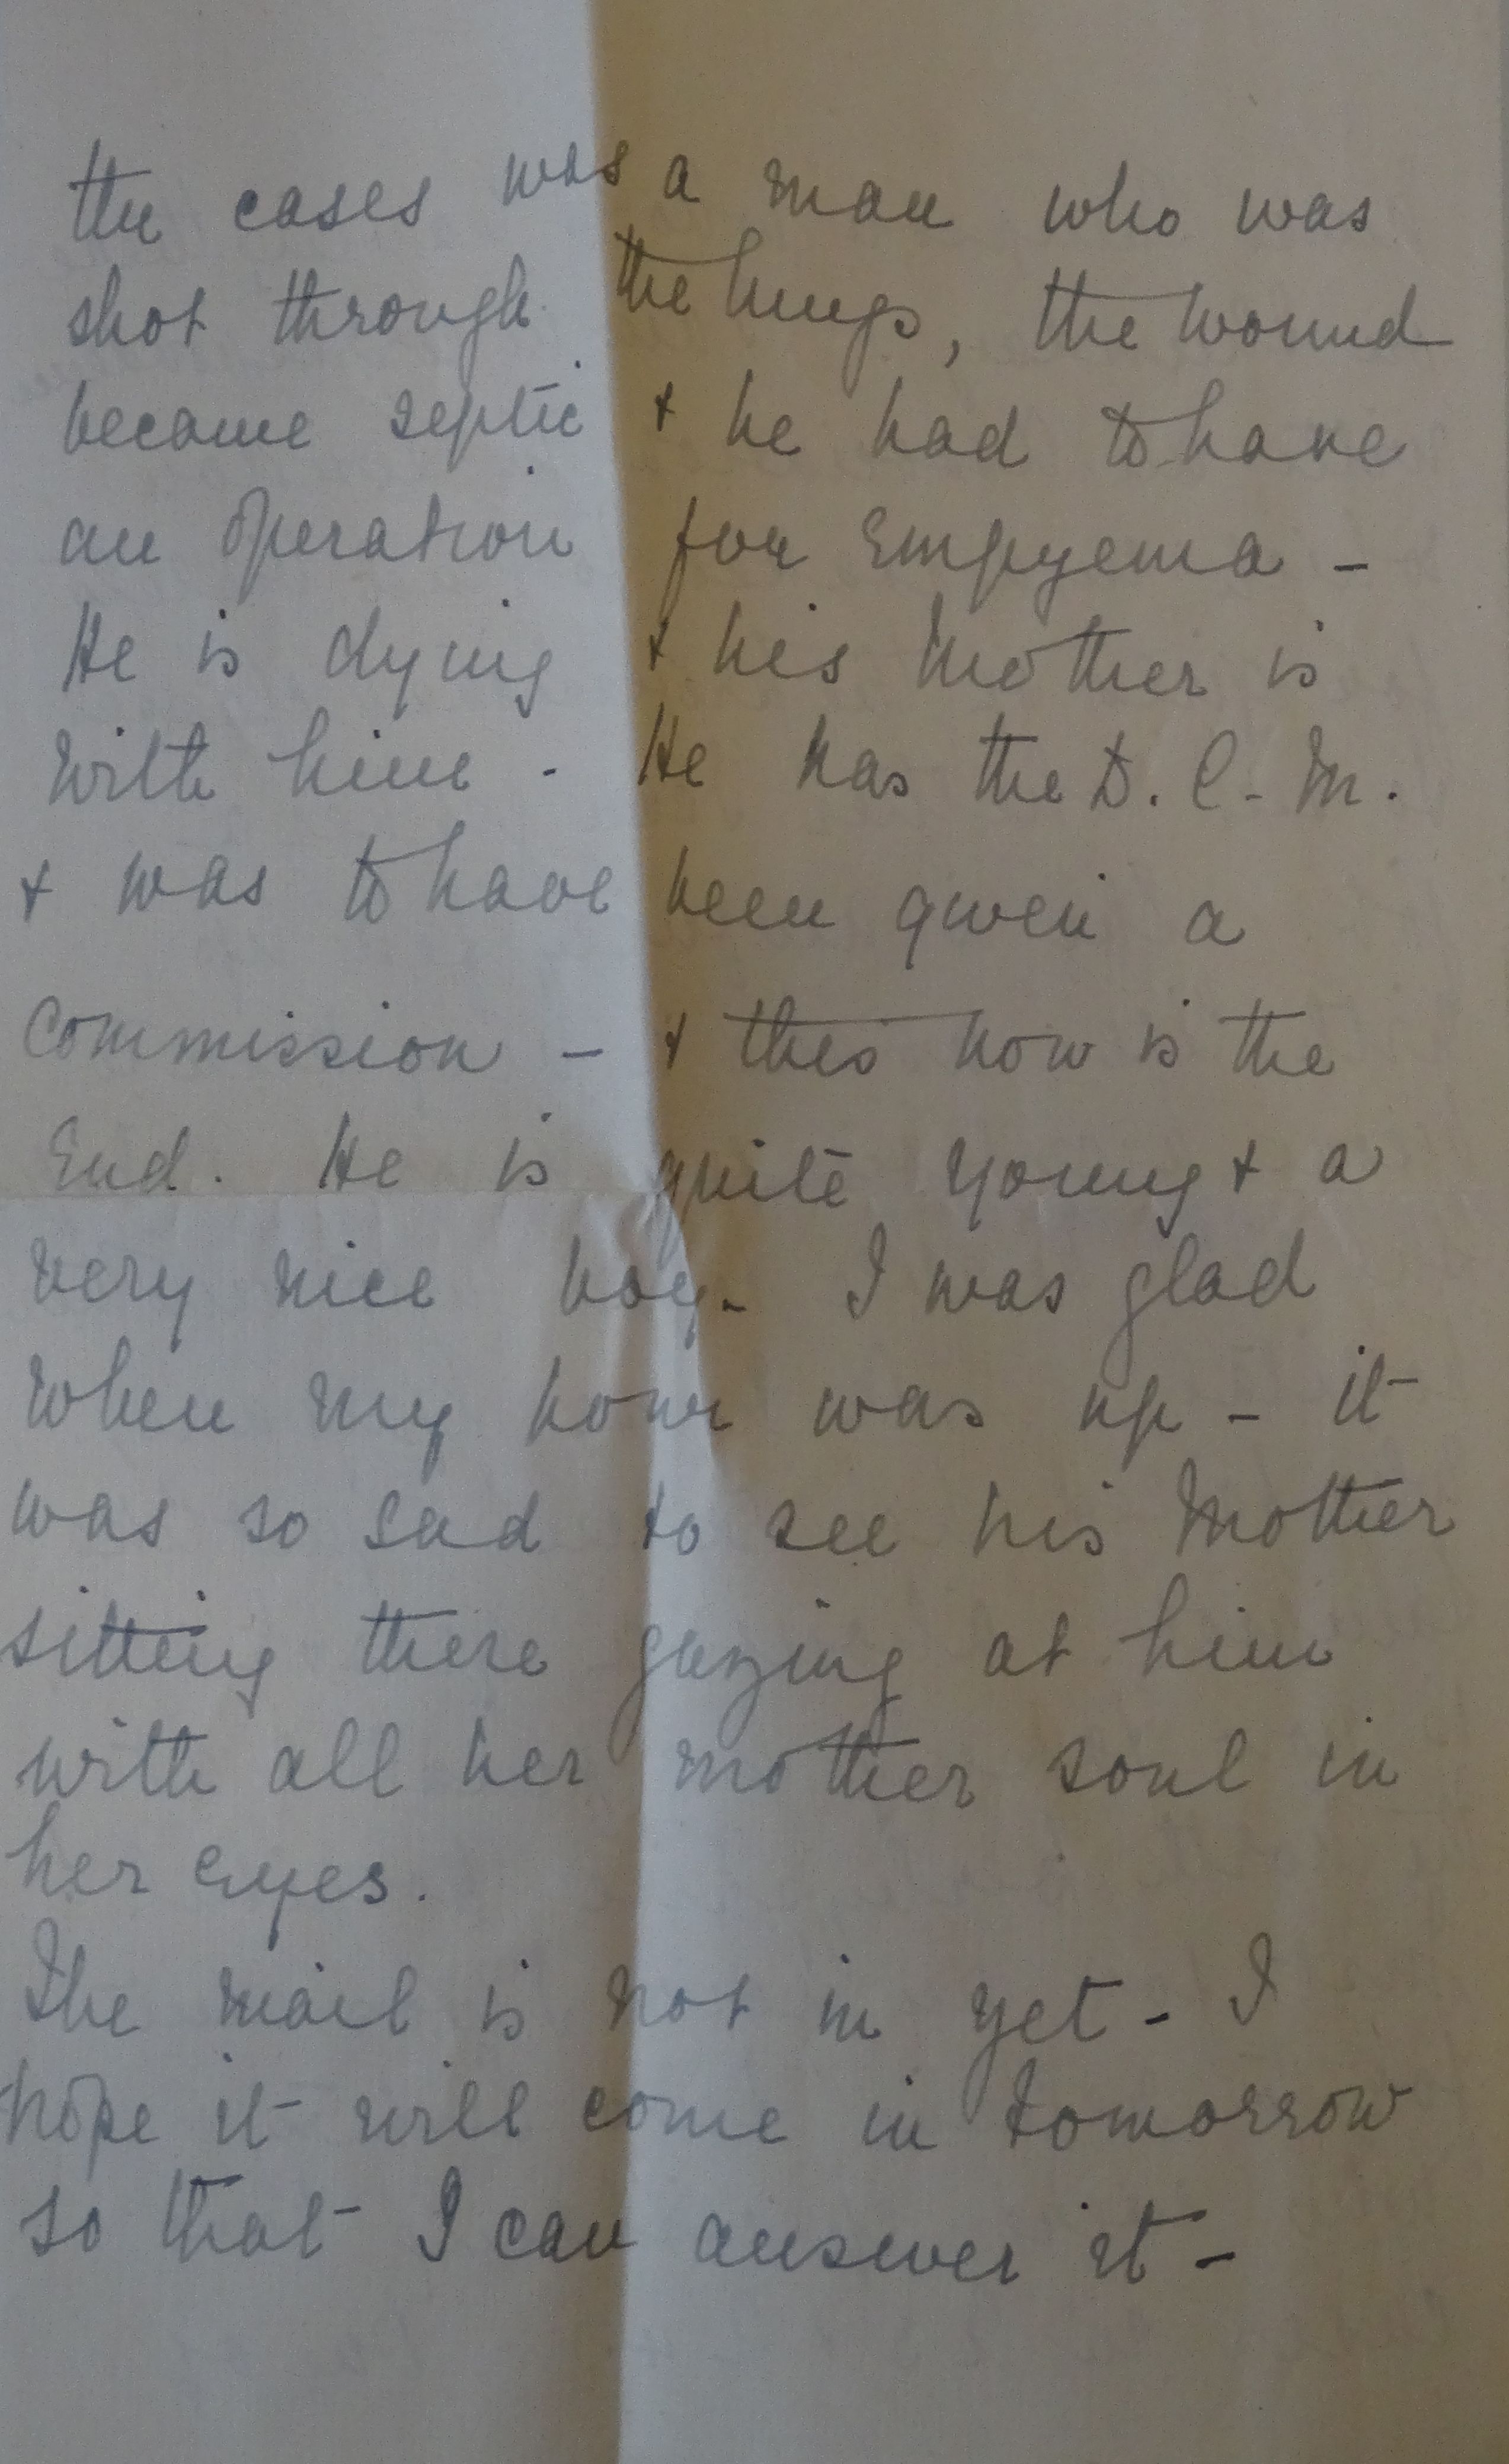 the cases was a man who was
shot through the lungs, the wound
became septic + he had to have
an operation for Empyema -
He is dying + his Mother is
with him - He has the D. C. M.
+ was to have been given a
Commission - + this now is the
End. He is quite young + a
very nice boy - I was glad
when my hour was up - it
was so sad to see his Mother
sitting there gazing at him
with all her mother soul in
her eyes.
The mail is not in yet - I
hope it will come in tomorrow
so that I can answer it -